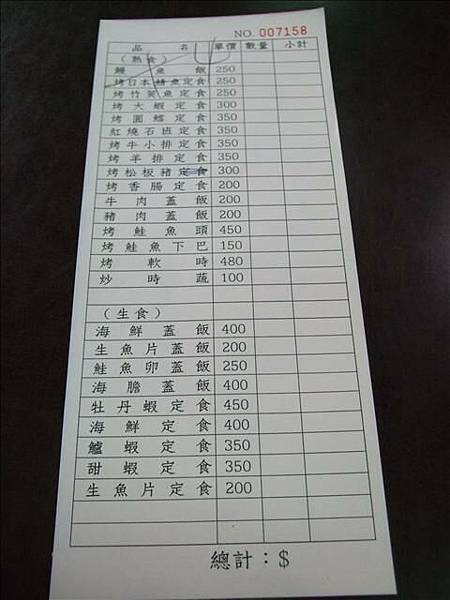 NO. 007158
品名 單價 數量 小計
（熟食）
鰻魚飯 250
烤日本鯖魚定食 250
烤竹筴魚定食 250
烤大蝦定食 300
烤圓鱈定食 350
紅燒石班定食 350
烤牛小排定食 350
烤羊排定食 350
烤松板豬定食 300
烤香腸定食 200
牛肉蓋飯 200
豬肉蓋飯 200
烤鮭魚頭 450
烤鮭魚下巴 150
烤軟時 480
炒時蔬 100
（生食）
海鮮蓋飯 400
生魚片蓋飯 200
鮭魚卵蓋飯 250
海膽蓋飯 400
牡丹蝦定食 450
海鮮定食 400
鱸蝦定食 350
甜蝦定食 350
生魚片定食 200
總計：$